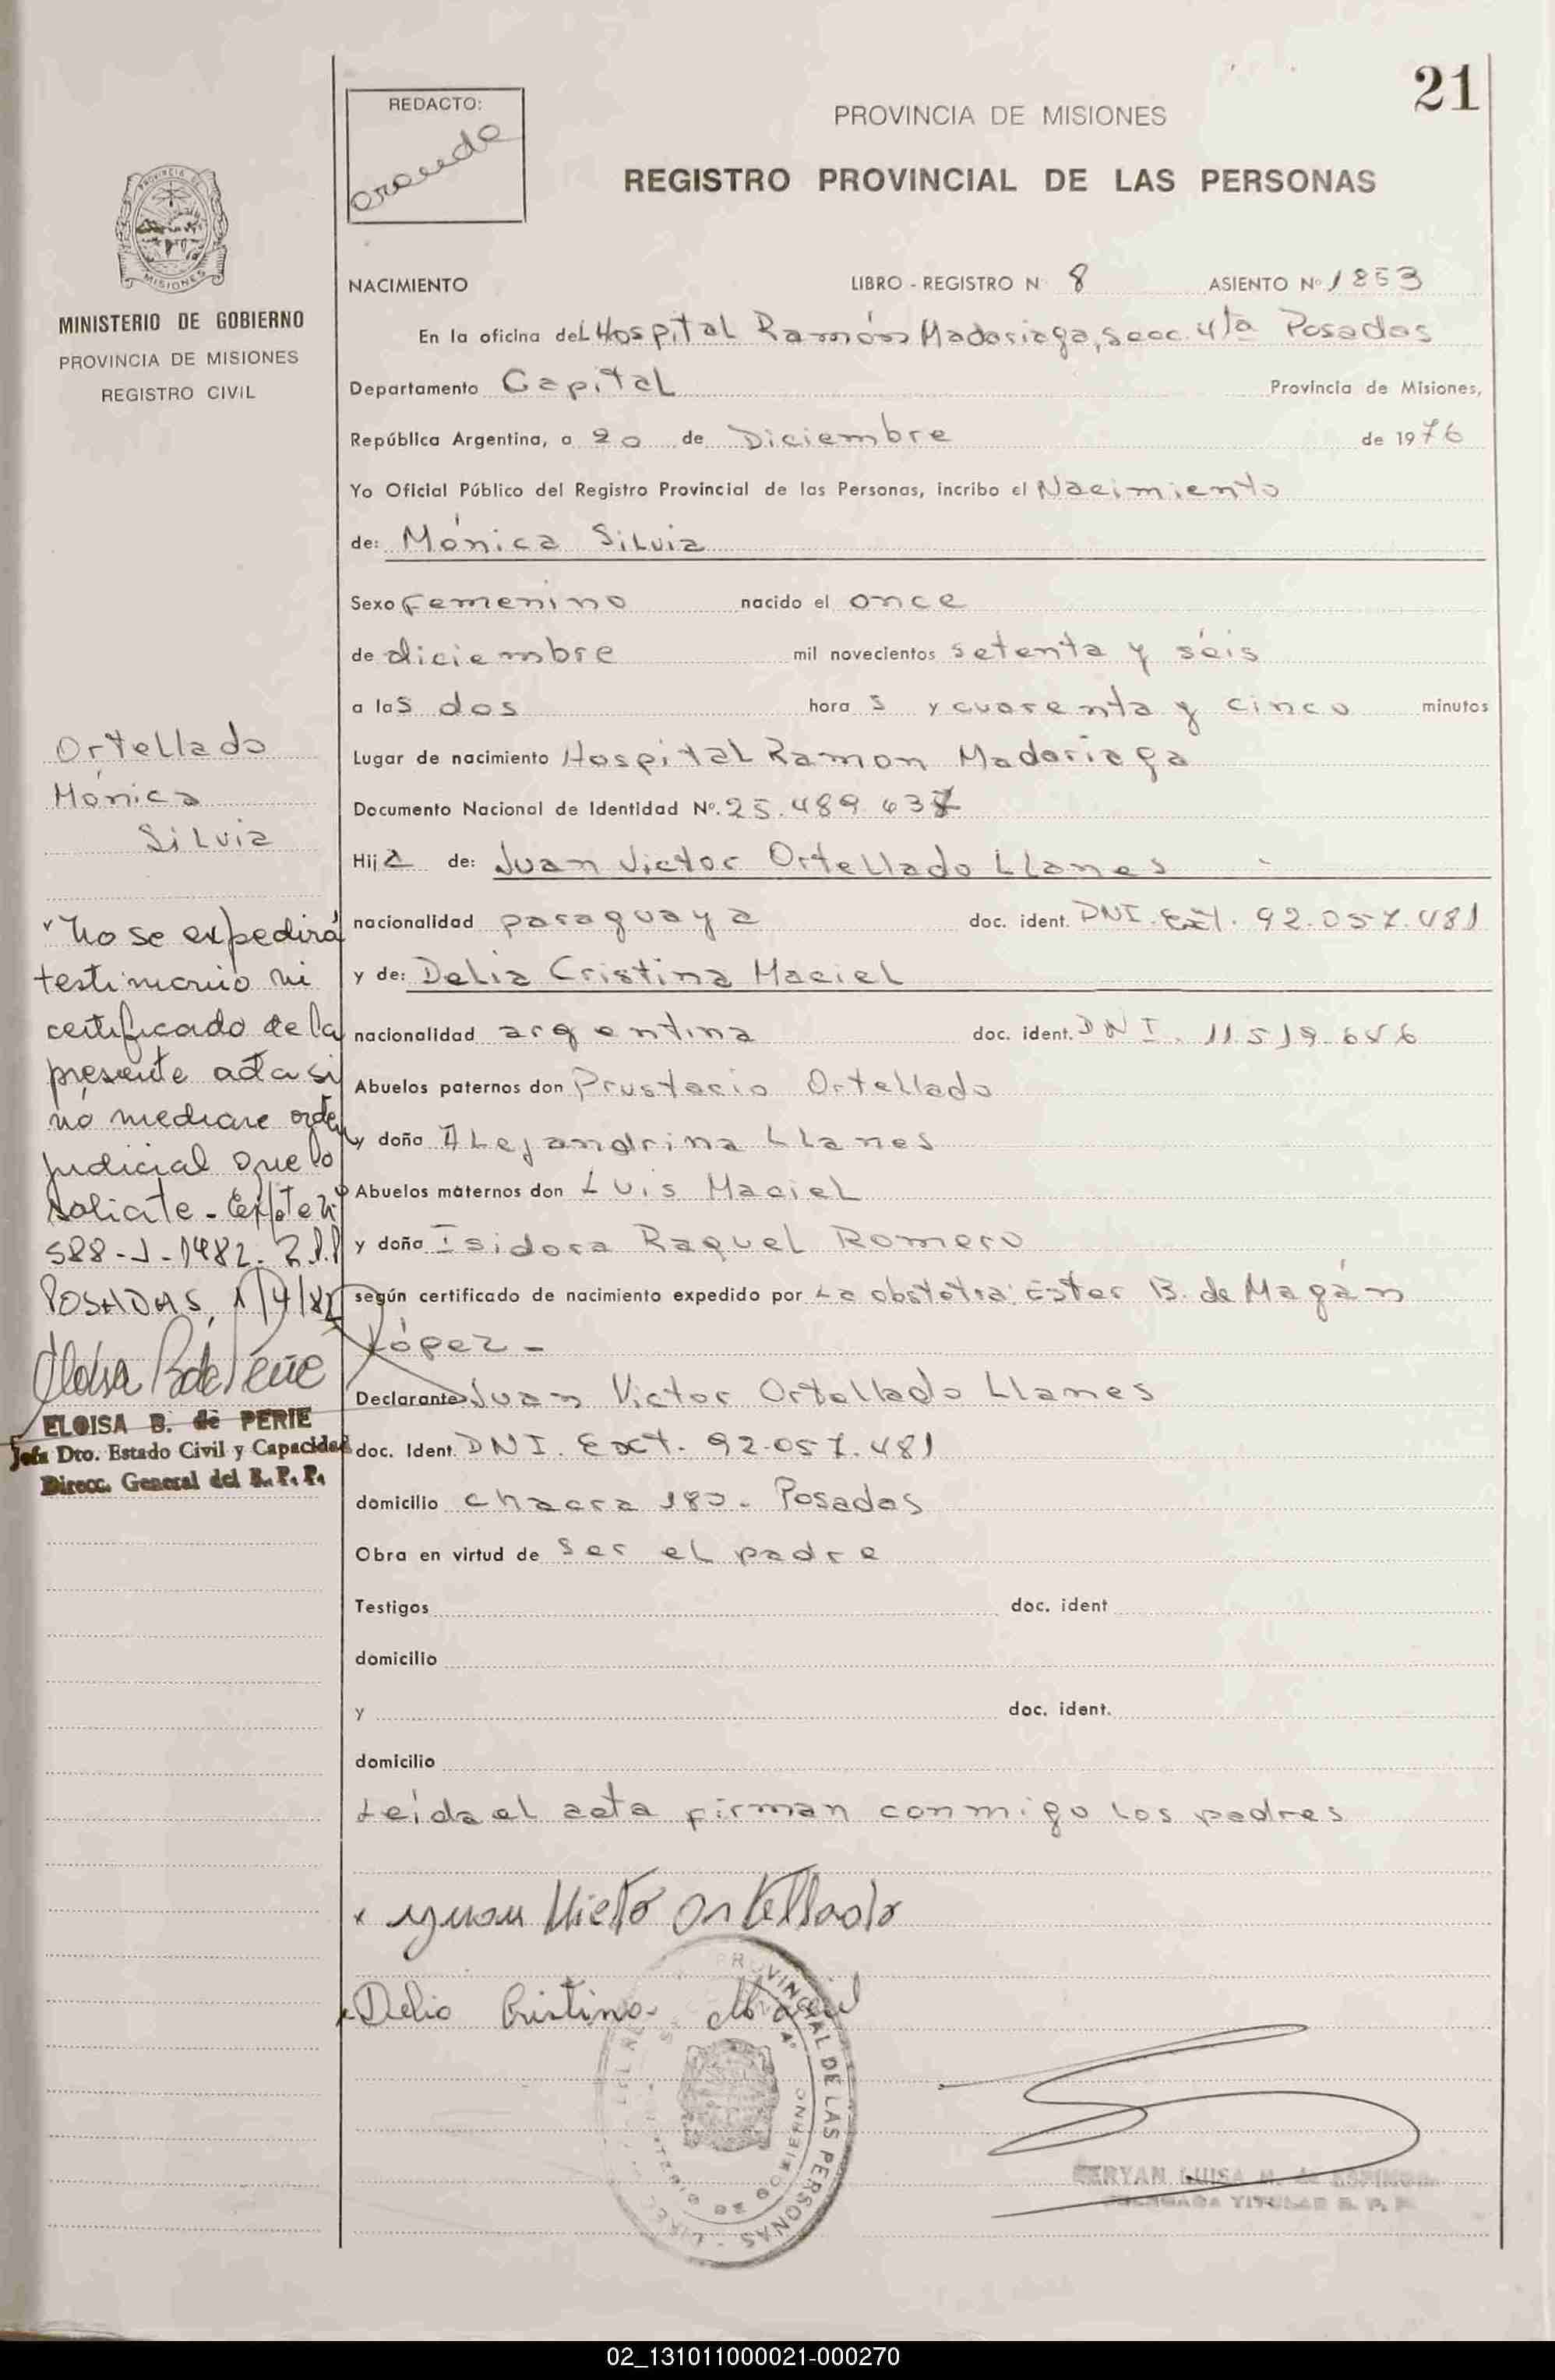 21
REDACTO:
PROVINCIA DE MISIONES
REGISTRO PROVINCIAL DE LAS PERSONAS
MISIONES
MINISTERIO DE GOBIERNO
PROVINCIA DE MISIONES
REGISTRO CIVIL
NACIMIENTO LIBRO - REGISTRO N 8 ASIENTO Nº 1853
En la oficina del Hospital Ramón Madariaga, secc. 4ta Posadas
Departamento Capital Provincia de Misiones,
República Argentina, a 20 de Diciembre de 1976
Yo Oficial Público del Registro Provincial de las Personas, incribo el Nacimiento
de: Mónica Silvia
Sexo femenino nacido el once
de diciembre mil novecientos setenta y séis
a las dos hora s y cuarenta y cinco minutos
Lugar de nacimiento Hospital Ramon Madariaga
Documento Nacional de Identidad Nº. 25.489.637
Hija de: Juan Victor Ortellado Llanes
nacionalidad paraguaya doc. ident. DNI. Ext. 92.057.481
y de: Delia Cristina Maciel
nacionalidad argentina doc. ident. DNI. 11519.656
Abuelos paternos don Prustacio Ortellado
y doña Alejandrina Llanes
Abuelos maternos don Luis Maciel
y doña Isidora Raquel Romero
según certificado de nacimiento expedido por La obstetra: Ester B. de Magán
López -
Declarante Juan Victor Ortellado Llanes
doc. Ident. DNI. Ext. 92.057.481
domicilio chacra 180. Posadas
Obra en virtud de ser el padre
Testigos doc. ident
domicilio
y doc. ident.
domicilio
Leída el acta firman conmigo los padres
x Juan Victo Ortellado
x Delia Cristina Maciel
Ortellado
Mónica
Silvia
"No se expedirá
testimonio ni
certificado de la
presente acta si
no mediare orden
judicial que lo
solicite - Expte nº
588-J-1482. R.P.P
POSADAS, 1/4/82
ELOISA B. de PERIE
Jefa Dto. Estado Civil y Capacidad
Direcc. General del R. P. P.
PROVINCIAL DE LAS PERSONAS
MERYAN LUISA
DELEGADA TITULAR R. P. P.
02_131011000021-000270